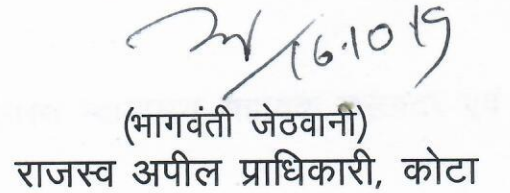 16.10.19
(भागवंती जेठवानी)
राजस्व अपील प्राधिकारी, कोटा